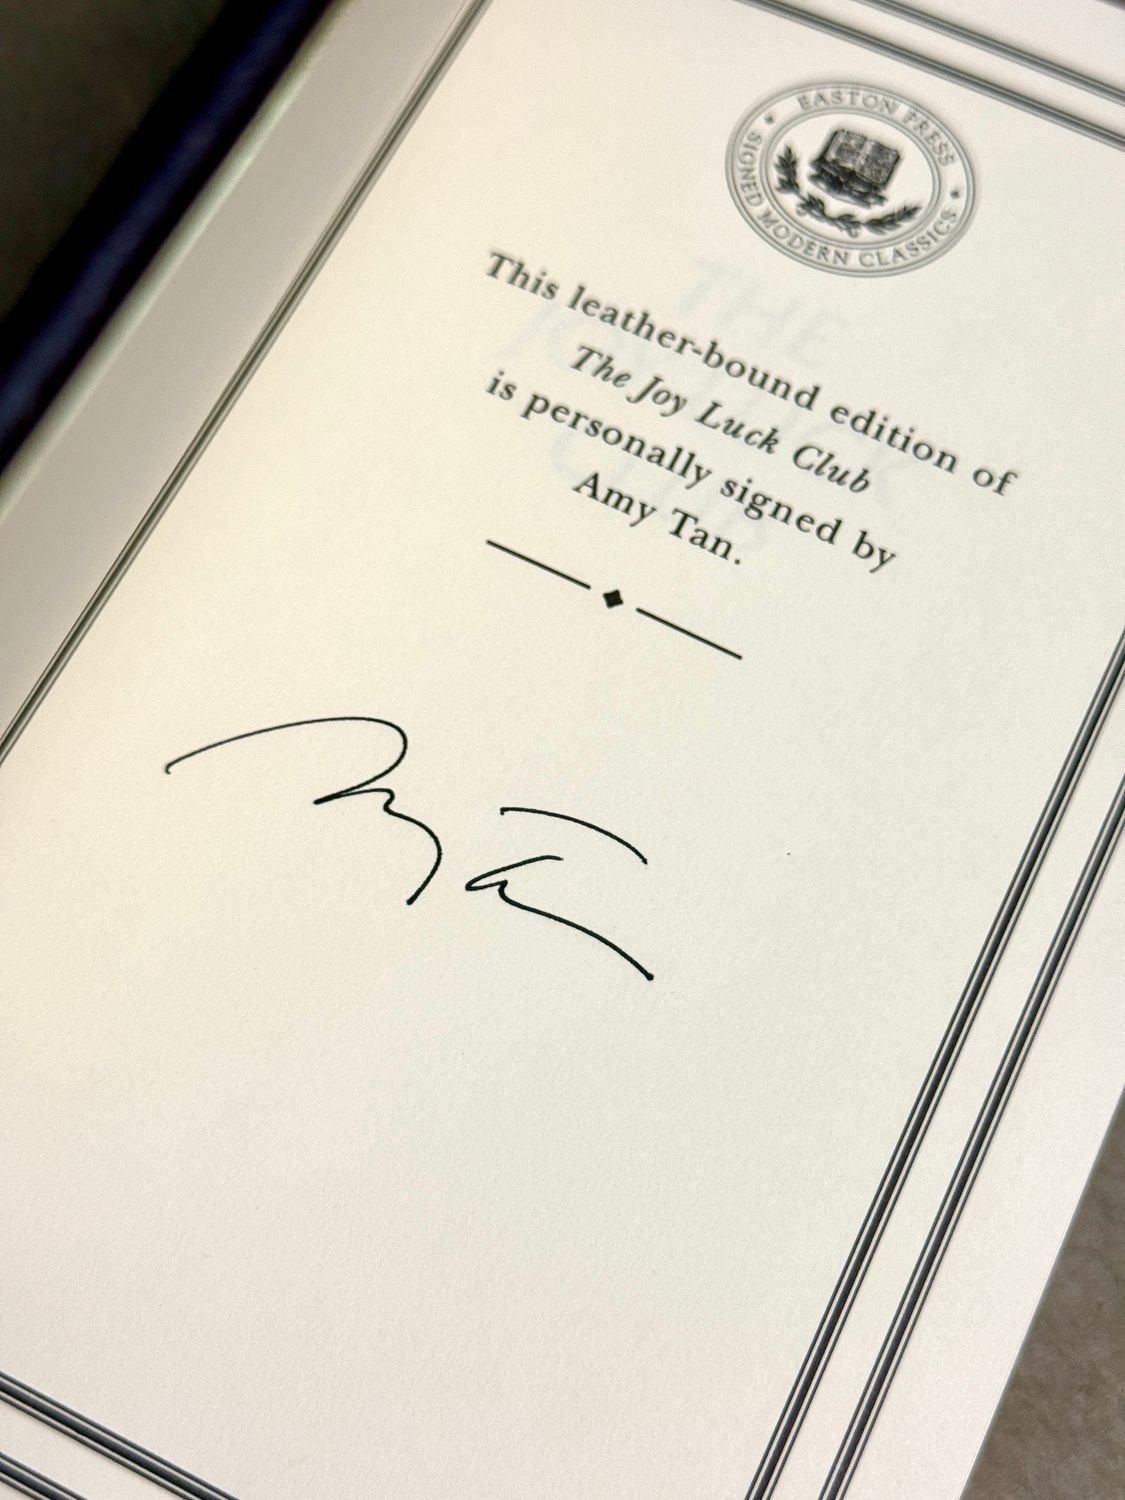 EASTON PRESS
SIGNED MODERN CLASSICS
This leather-bound edition of
The Joy Luck Club
is personally signed by
Amy Tan.
Amy Tan